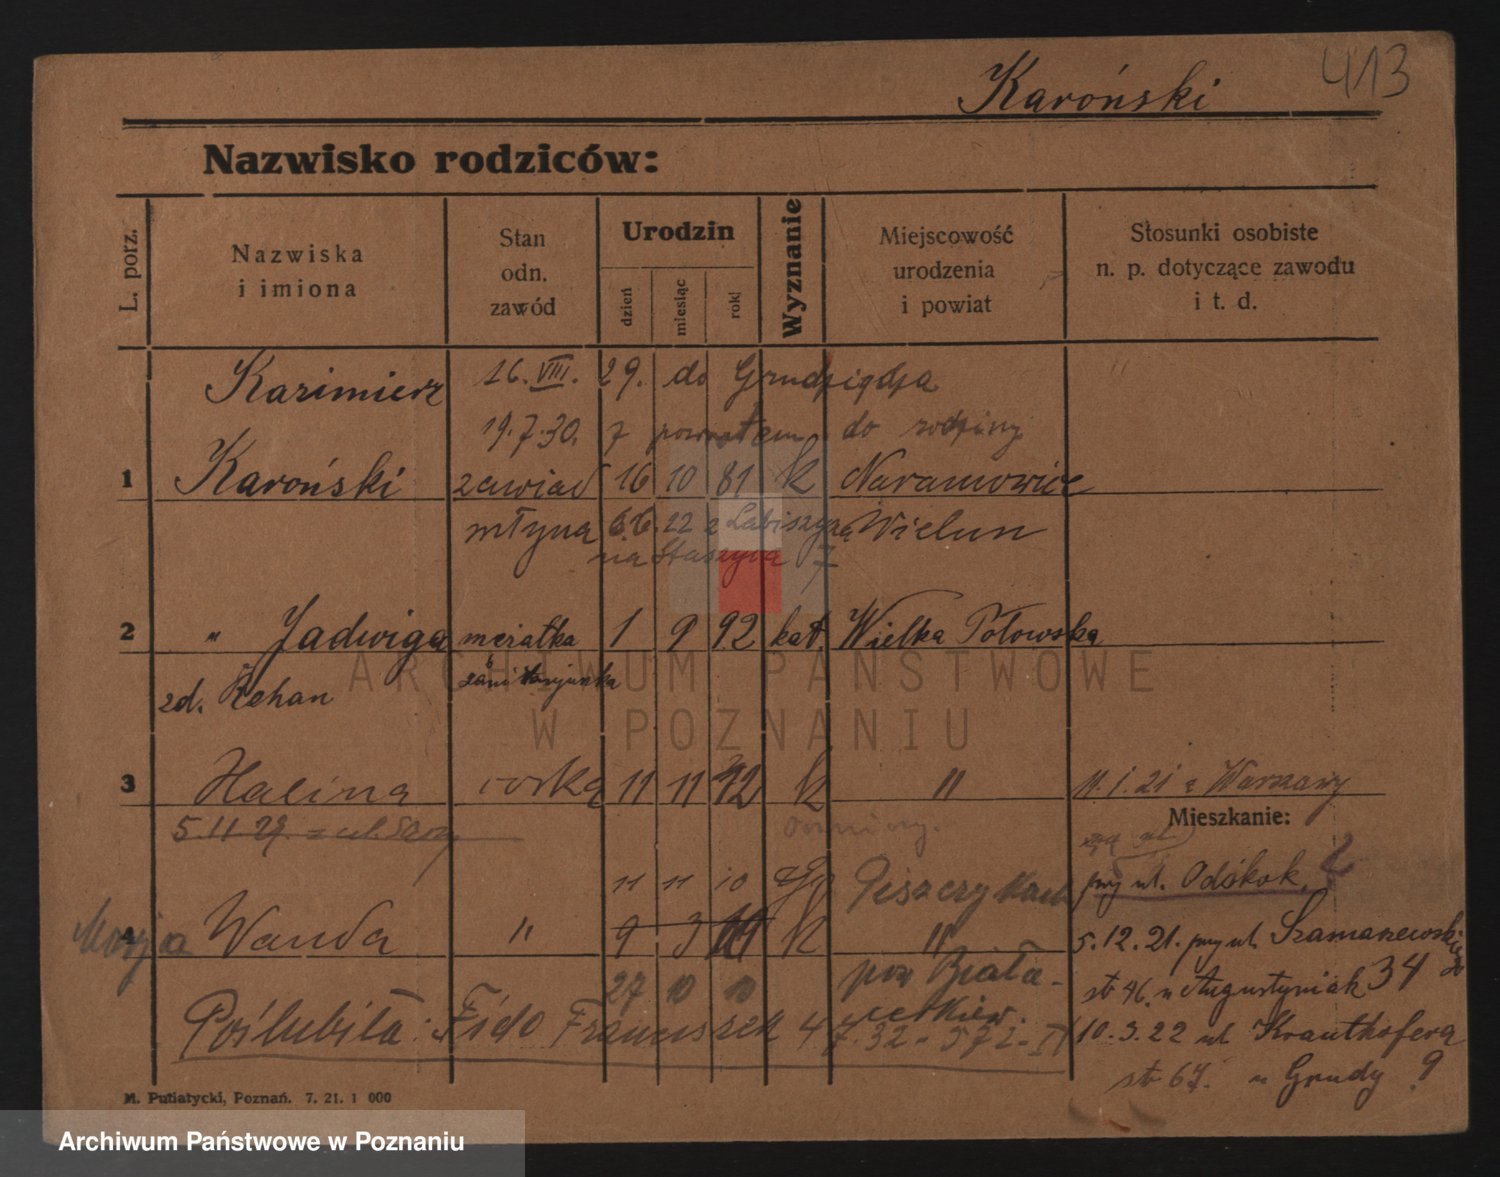 413
Karoński
Nazwisko rodziców:
L. porz.
Nazwiska
i imiona
Stan
odn.
zawód
Urodzin
dzień
miesiąc
rok
Wyznanie
Miejscowość
urodzenia
i powiat
Stosunki osobiste
n. p. dotyczące zawodu
i t. d.
Kazimierz 16. VIII. 29. do Grudziądza
19.7.30. z powrotem do rodziny
1 Karoński zawiad 16 10 81 k Naramowice
młyna 6.6. 22 z Łabiszyna Wielun
na Staszyca 7
2 " Jadwiga mężatka 1 9 92 kat. Wielka Połowska
zd. Řehan sanitarjuszka
ARCHIWUM PAŃSTWOWE
W POZNANIU
3 Halina córka 11 11 12 k " 11.1.21 z Warszawy
5.11.29.
Mieszkanie:
11 11 10
przy ul.
4 Marja Wanda " 9 3 k "
5.12.21. przy ul. Szamarzewskiego
27 10 10 pow Biała-
cerkiew.
st 46. u Augustyniak 34
Poślubiła: Fido Franciszek 4 7.32 - 572 - IV
10.3.22 ul Krauthofera
st 67. u Grudy 9
M. Putiatycki, Poznań. 7. 21. 1 000
Archiwum Państwowe w Poznaniu